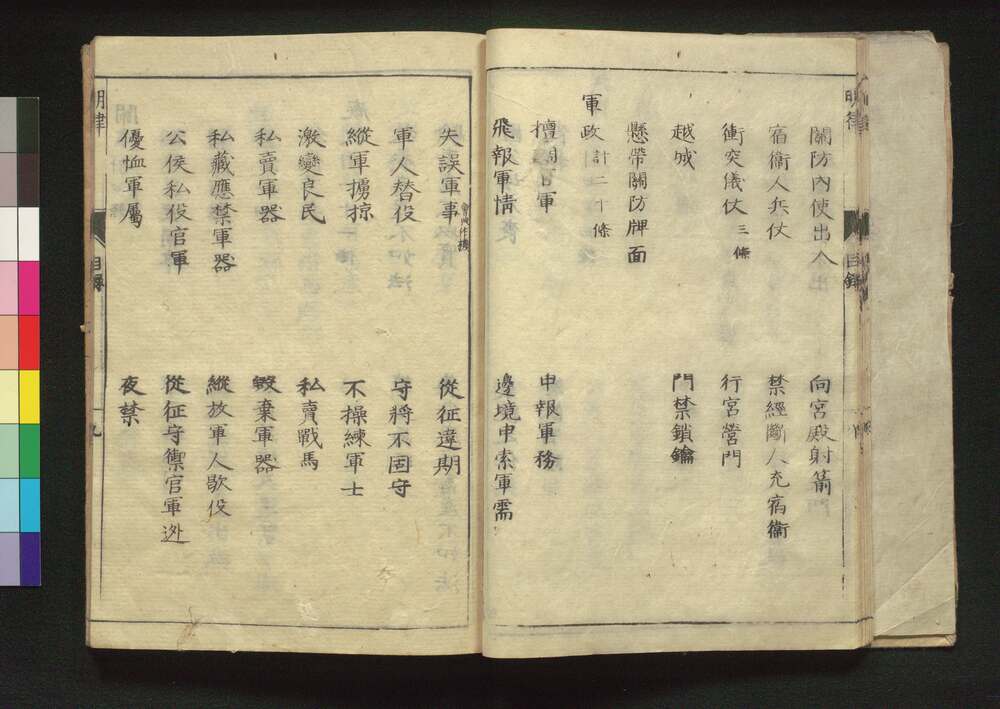 明律
目錄
關防內使出入
向宮殿射箭
宿衛人兵仗
禁經斷人充宿衛
衝突儀仗 三條
行宮營門
越城
門禁鎖鑰
懸帶關防牌面
軍政 計二十條
擅調官軍
申報軍務
飛報軍情
邊境申索軍需
失誤軍事
從征違期
軍人替役
守將不固守
縱軍擄掠
不操練軍士
激變良民
私賣戰馬
私賣軍器
毀棄軍器
私藏應禁軍器
縱放軍人歇役
公侯私役官軍
從征守禦官軍逃
優恤軍屬
夜禁
明律
目錄
九